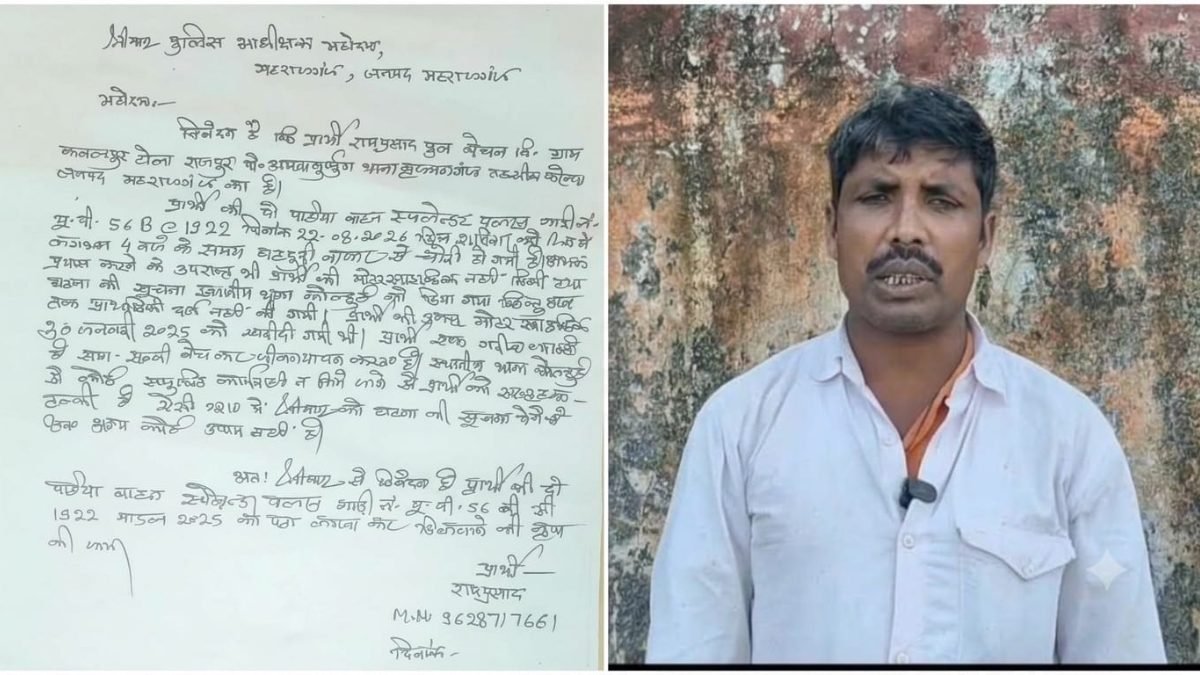 श्रीमान पुलिस अधीक्षक महोदय,
महराजगंज, जनपद महराजगंज
महोदय:-
निवेदन है कि प्रार्थी रामप्रसाद पुत्र बेचन नि. ग्राम
टोला राजपुर पो. थाना बृजमनगंज तहसील
जनपद महराजगंज का है।
प्रार्थी की दो पहिया वाहन स्पलेन्डर पलस गाडी नं.
यू. पी. 56 B 1922 दिनांक 22-08.2026 दिन शनिवा को
लगभग 4 बजे के समय से चोरी हो गयी है।
प्रयास करने के उपरान्त भी प्रार्थी की मोटरसाइकिल नही मिली तथा
घटना की सूचना स्थानीय थाना कोल्हुई को दिया गया किन्तु
तक प्राथमिकी दर्ज नही की गयी। प्रार्थी की मोटर साइकिल
30 जनवरी 2025 को खरीदी गयी थी। प्रार्थी एक गरीब
है साग-सब्जी बेच कर जीवनयापन करता है। स्थानीय थाना कोल्हुई
से कोई न किये जाने से प्रार्थी को
है ऐसी दशा में श्रीमान को घटना की सूचना देने के
अलावा कोई उपाय नही है।
अत! श्रीमान से निवेदन है प्रार्थी की दो
पहिया वाहन स्पलेन्डर पलस गाडी नं. यू. पी. 56 बी
1922 माडल 2025 को पता लगाकर दिलवाने की कृपा
की जाय
प्रार्थी
रामप्रसाद
M.N. 9628717661
दिनांक-